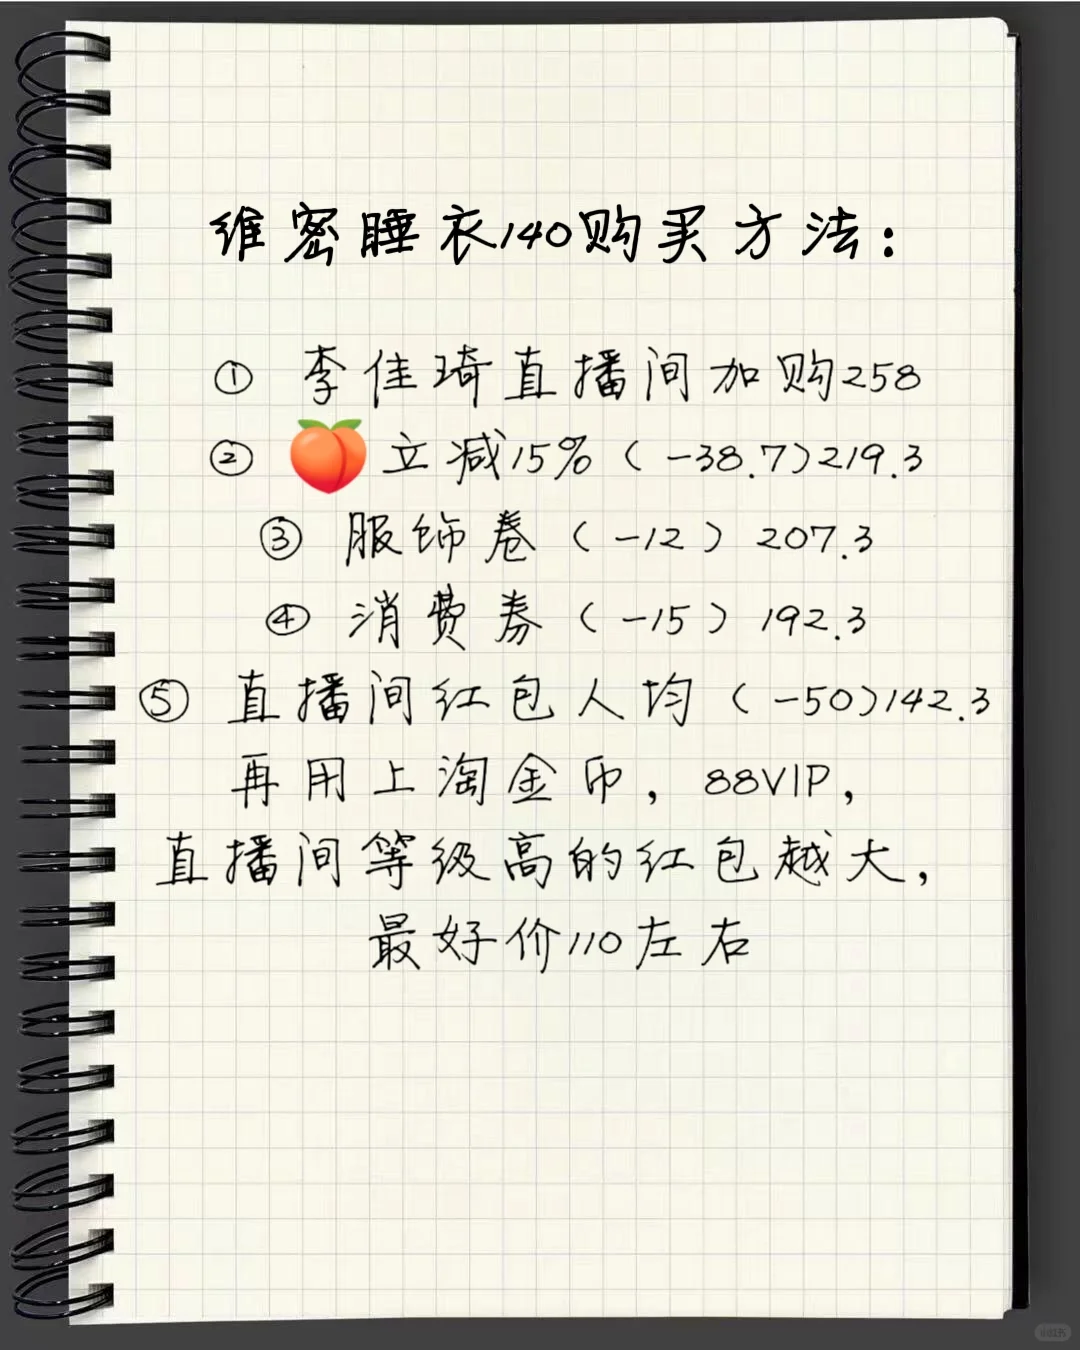 维密睡衣140购买方法：
① 李佳琦直播间加购258
② 🍑 立减15%（-38.7)219.3
③ 服饰卷（-12）207.3
④ 消费券（-15）192.3
⑤ 直播间红包人均（-50)142.3
再用上淘金币，88VIP，
直播间等级高的红包越大，
最好价110左右
小红书